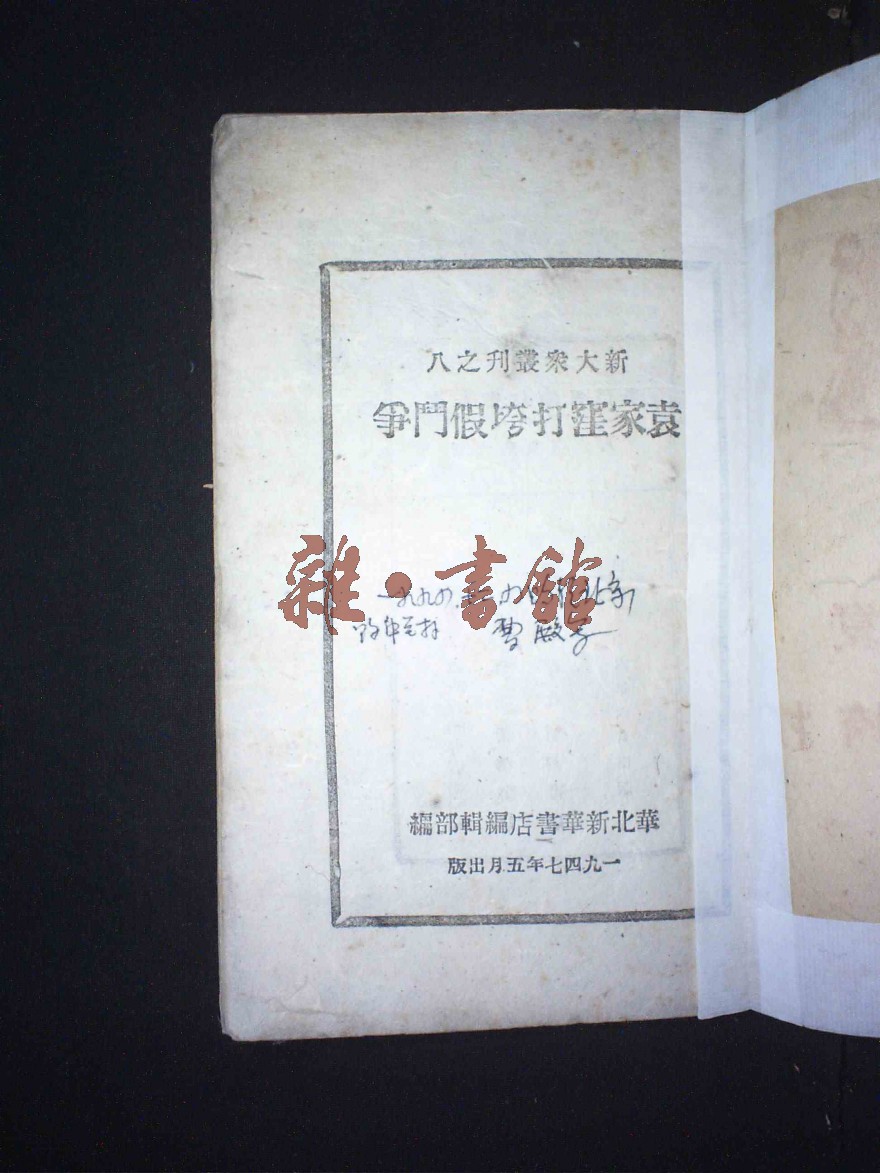 新大衆叢刊之八
袁家窪打垮假鬥爭
雜·書館
華北新華書店編輯部編
一九四七年五月出版